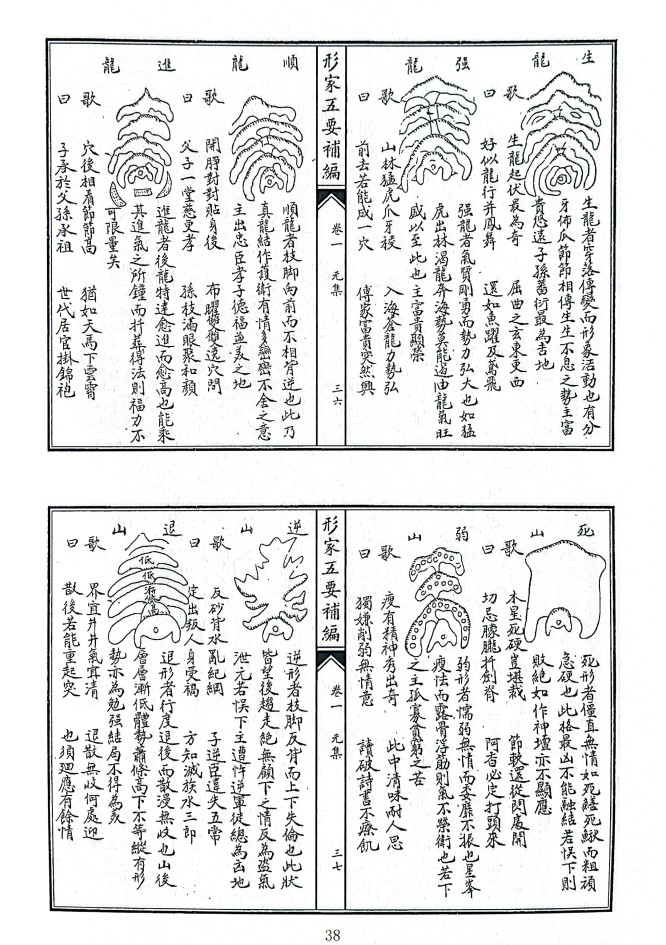 生龍
生龍者穿落傳變而形象活動也有分
牙佈爪節節相傳生生不息之勢主富
貴悠遠子孫蕃衍最為吉地
歌曰
生龍起伏最為奇 屈曲之玄來東西
好似龍行并鳳舞 還如魚躍及鳶飛
强龍
强龍者氣質剛勇而勢力弘大也如猛
虎出林渴龍奔海勢莫能遏由龍氣旺
盛以至此也主富貴顯榮
歌曰
山林猛虎爪牙稜 入海奎龍力勢弘
前去若能成一穴 傳家富貴突然興
形家五要補編
卷一 元集
三六
順龍
順龍者枝脚向前而不相背逆也此乃
真龍結作護衛有情多巒密不舍之意
主出忠臣孝子德福並美之地
歌曰
開睜對對貼身後 布曜雙雙遶穴問
父子一堂慈更孝 孫枝滿眼聚和顏
進龍
進龍者後龍特達愈進而愈高也能乘
其進氣之所鐘而扦葬得法則福力不
可限量矣
歌曰
穴後相看節節高 猶如天馬下雲霄
子承於父孫承祖 世代居官掛錦袍
死山
死形者僵直無情如死鱔死鰍而粗頑
急硬也此格最凶不能融結若悞下則
敗絕如作神壇亦不顯應
歌曰
木星死硬豈堪裁 節軟還從閃處開
切忌朦朧扦劍脊 阿香必定打頭來
弱山
弱形者懦弱無情而委靡不振也星峯
瘦怯而露骨浮筋則氣不榮衛也若下
之主孤寡貧窮之苦
歌曰
瘦有精神秀出奇 此中清味耐人思
獨嫌削弱無情意 讀破詩書不療飢
形家五要補編
卷一 元集
三七
逆山
逆形者枝脚反背而上下失倫也此狀
皆望後趨走絕無顧下之情反為盜氣
泄元若悞下主遭忤逆軍徒總為凶地
歌曰
反砂背水亂紀綱 子逆臣違失五常
定出叛人身受福 方知滅族水三郎
退山
低
低
漸
漸
高
退形者行度退後而散漫無收也山後
層層漸低體勢蕭條高下不等縱有形
勢亦為勉强結局不得為美
歌曰
界宜井井氣宜清 退散無收何處迎
散後若能重起突 也須迴應有餘情
38